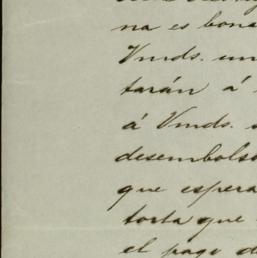 na es bona
Vmds. un
tarán á
á Vmds.
desembolso
que espera
torta que
el pago d